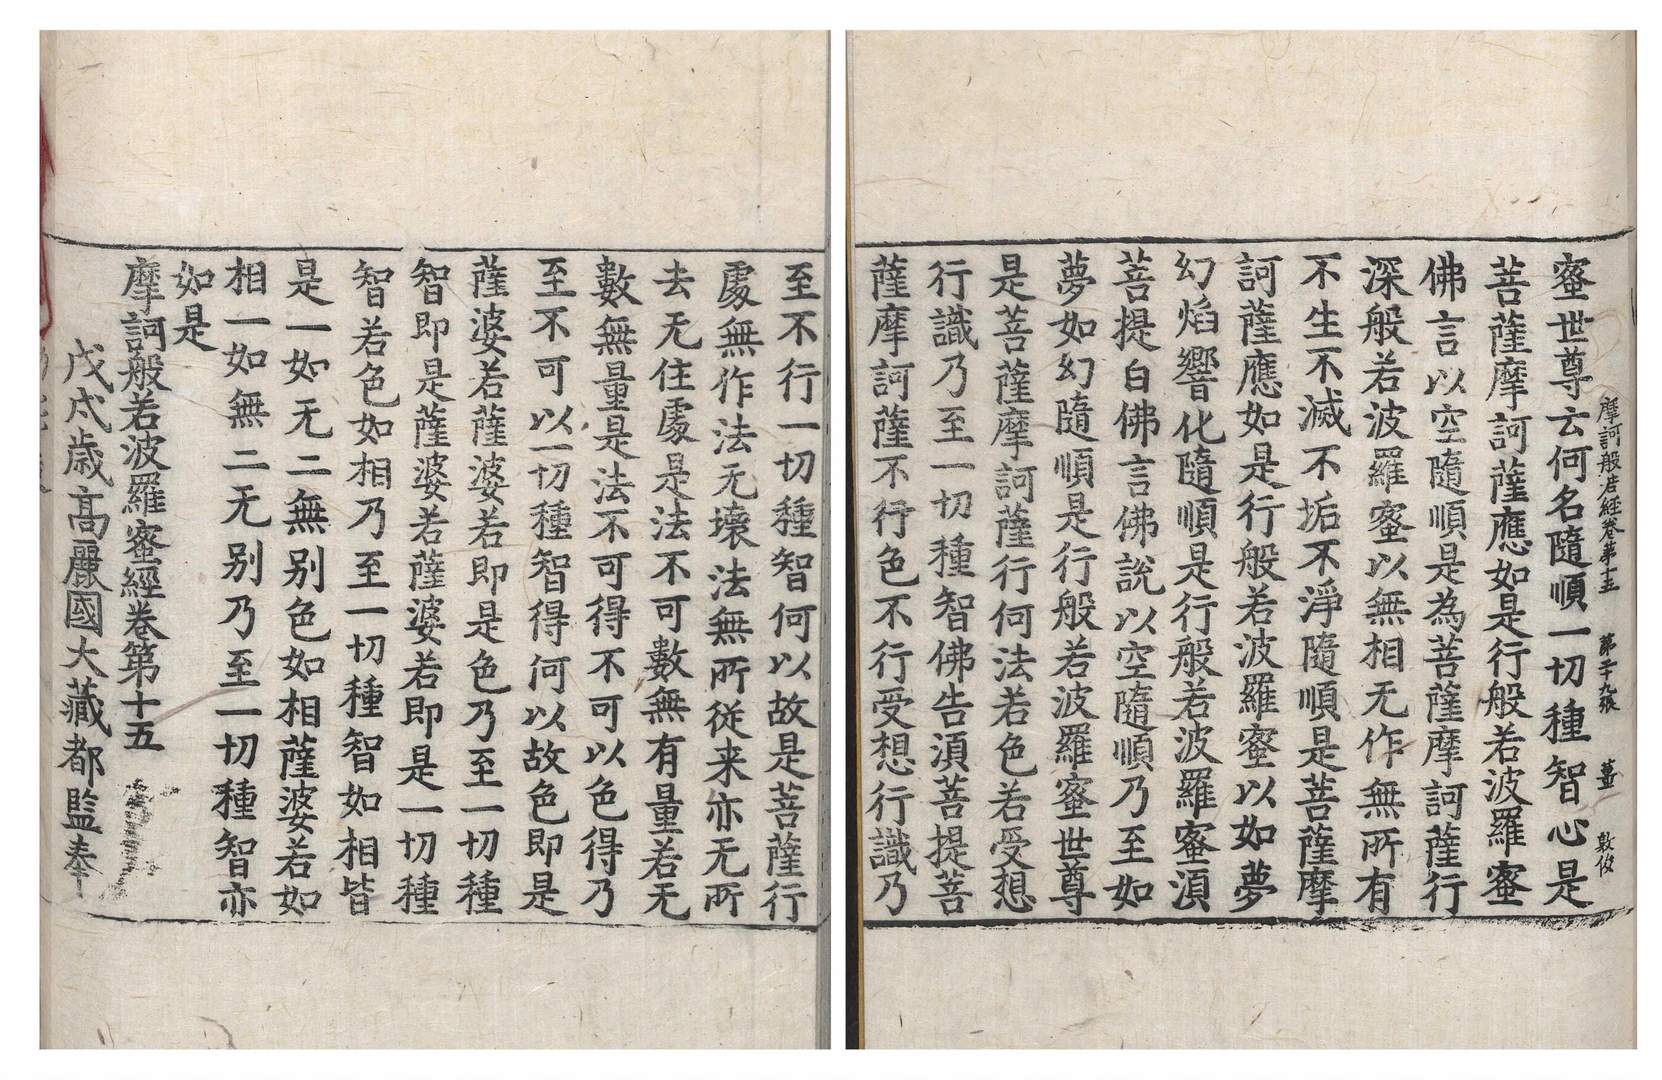 摩訶般若經卷第十五　第二十九張　薑　敦攸
蜜世尊云何名隨順一切種智心是
菩薩摩訶薩應如是行般若波羅蜜
佛言以空隨順是為菩薩摩訶薩行
深般若波羅蜜以無相无作無所有
不生不滅不垢不淨隨順是菩薩摩
訶薩應如是行般若波羅蜜以如夢
幻焰響化隨順是行般若波羅蜜須
菩提白佛言佛說以空隨順乃至如
夢如幻隨順是行般若波羅蜜世尊
是菩薩摩訶薩行何法若色若受想
行識乃至一切種智佛告須菩提菩
薩摩訶薩不行色不行受想行識乃
至不行一切種智何以故是菩薩行
處無作法无壞法無所從来亦无所
去无住處是法不可數無有量若无
數無量是法不可得不可以色得乃
至不可以一切種智得何以故色即是
薩婆若薩婆若即是色乃至一切種
智即是薩婆若薩婆若即是一切種
智若色如相乃至一切種智如相皆
是一如无二無别色如相薩婆若如
相一如無二无别乃至一切種智亦
如是
摩訶般若波羅蜜經卷第十五
戊戌歲高麗國大藏都監奉